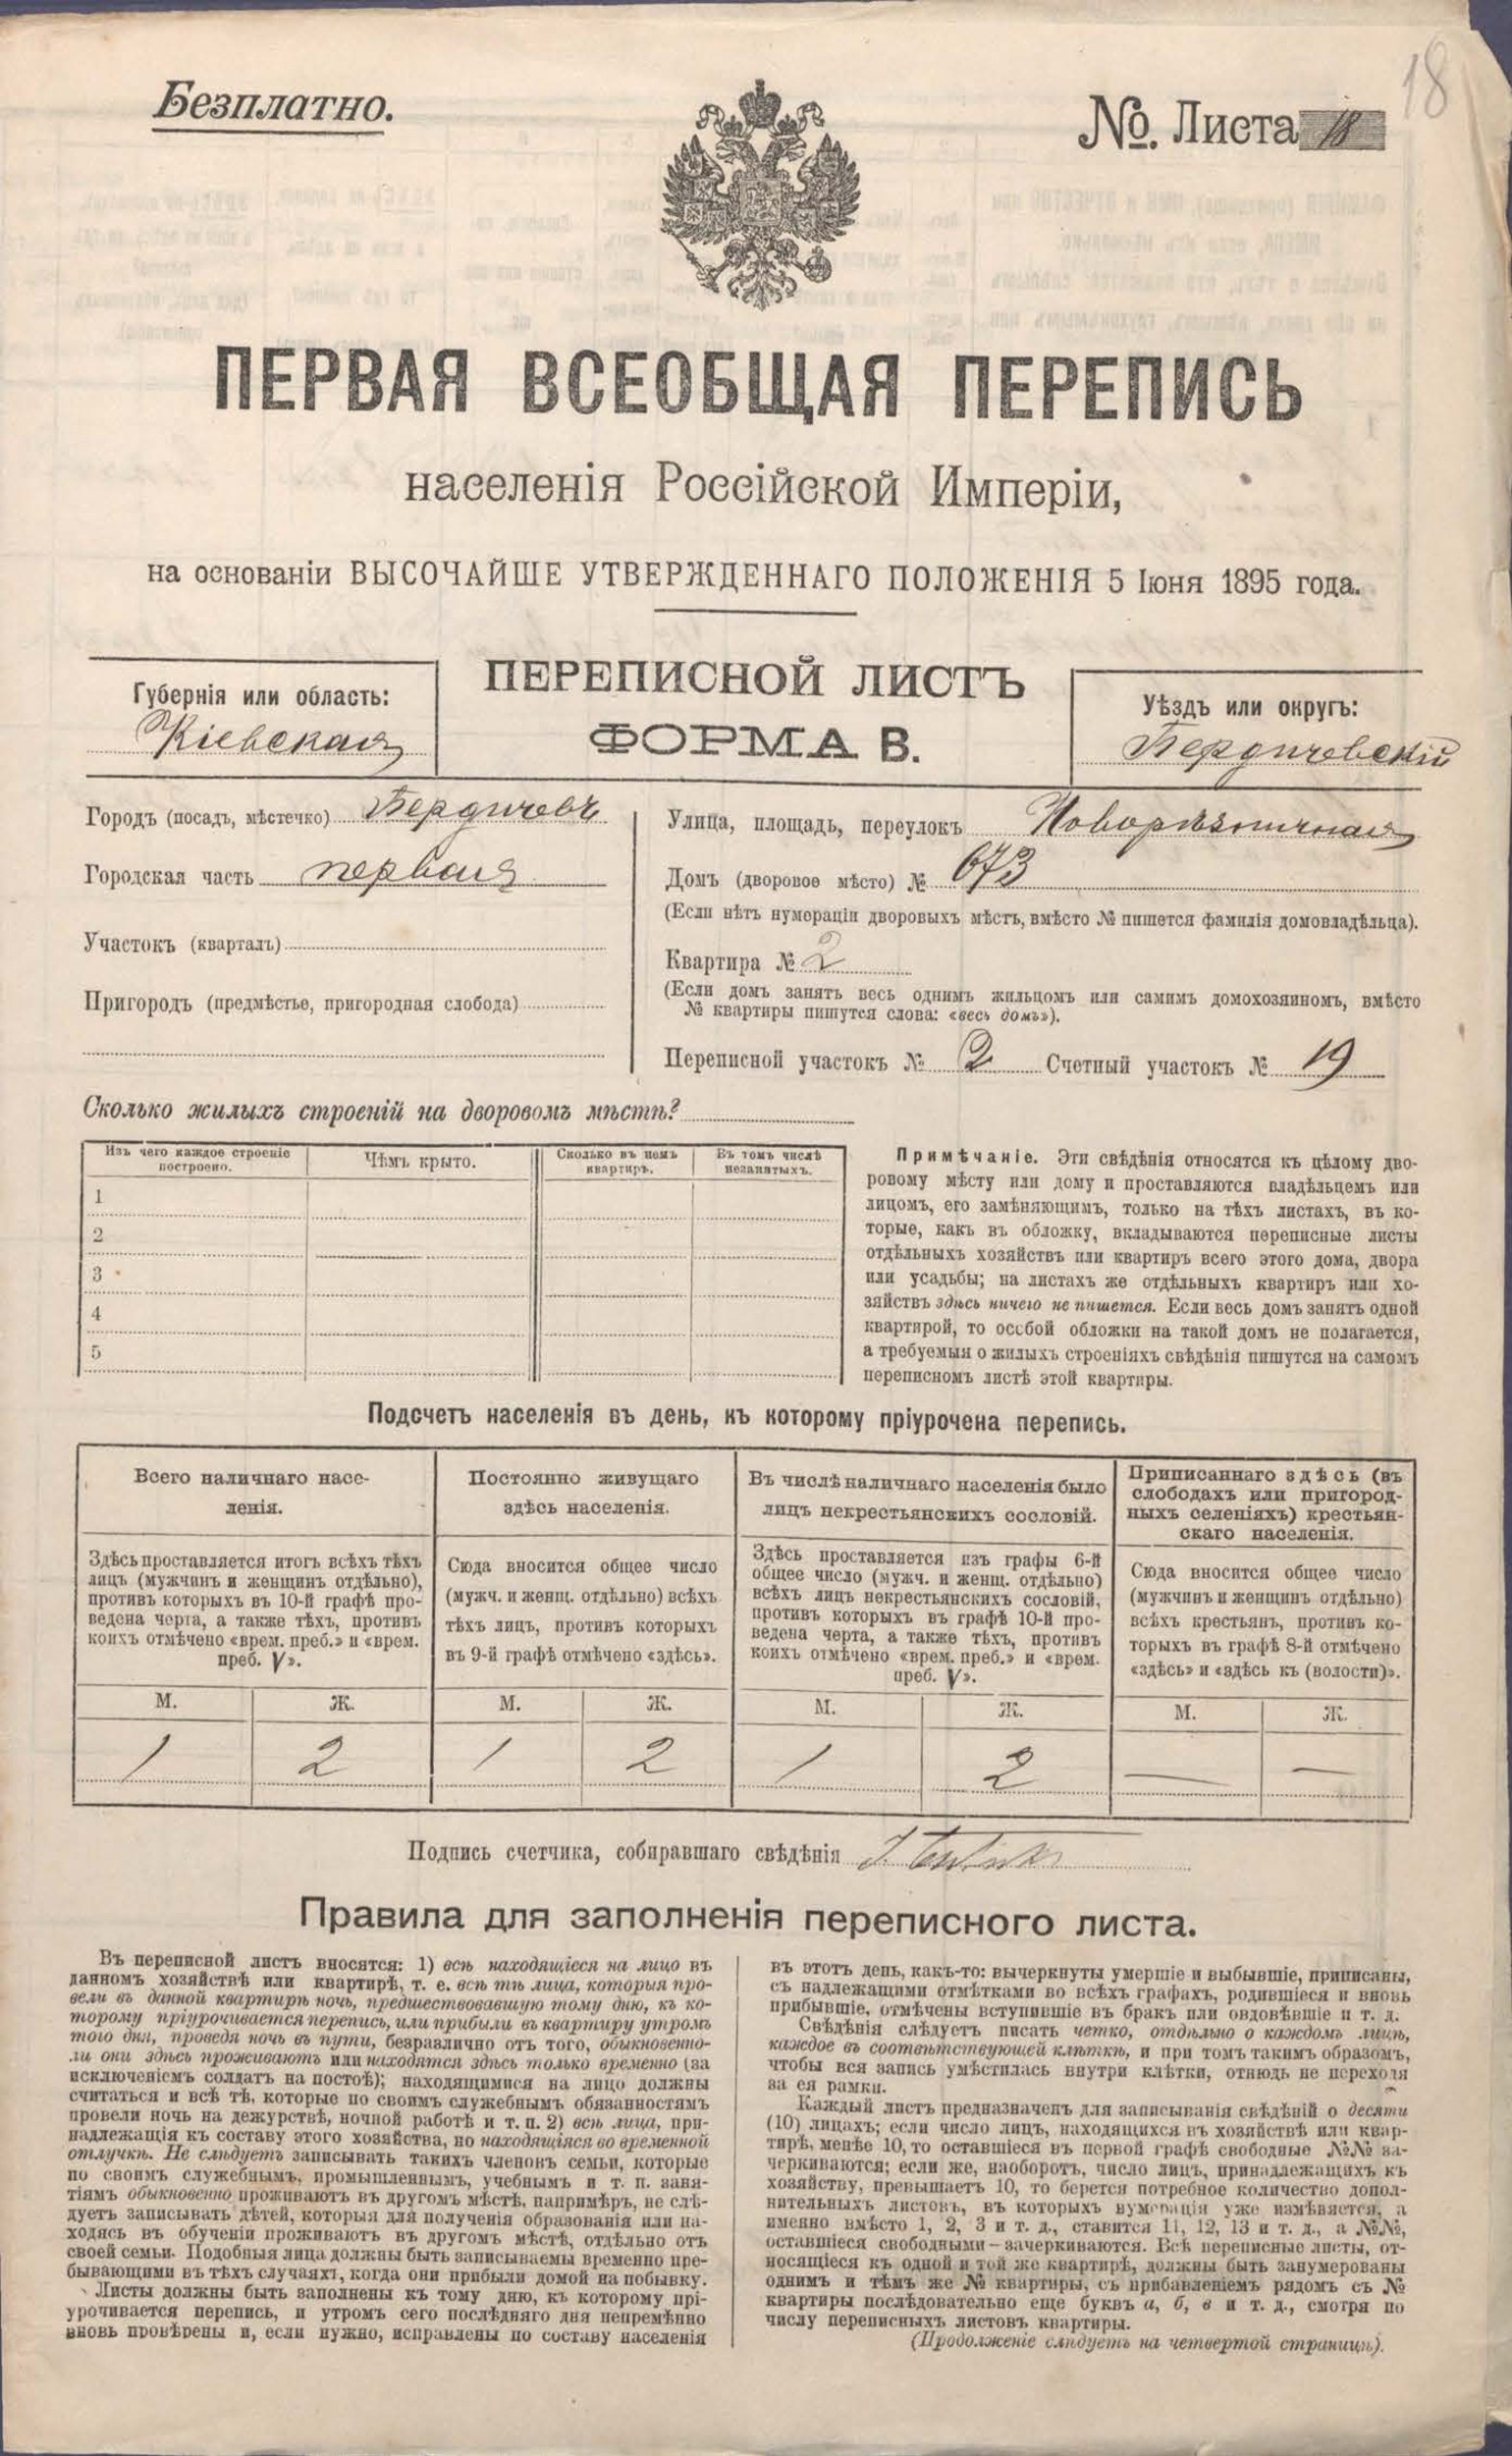 18
Безплатно.
№. Листа 18
ПЕРВАЯ ВСЕОБЩАЯ ПЕРЕПИСЬ
населенія Россійской Имперіи,
на основаніи ВЫСОЧАЙШЕ УТВЕРЖДЕННАГО ПОЛОЖЕНІЯ 5 Іюня 1895 года.
Губернія или область:
Кіевская
ПЕРЕПИСНОЙ ЛИСТЪ
ФОРМА В.
Уѣздъ или округъ:
Бердичевскій
Городъ (посадъ, мѣстечко) Бердичевъ
Городская часть первая
Участокъ (кварталъ)
Пригородъ (предмѣстье, пригородная слобода)
Улица, площадь, переулокъ Новорѣзничная
Домъ (дворовое мѣсто) № 673
(Если нѣтъ нумераціи дворовыхъ мѣстъ, вмѣсто № пишется фамилія домовладѣльца).
Квартира № 2
(Если домъ занятъ весь однимъ жильцомъ или самимъ домохозяиномъ, вмѣсто
№ квартиры пишутся слова: «весь домъ»).
Переписной участокъ № 2 Счетный участокъ № 19
Сколько жилыхъ строеній на дворовомъ мѣстѣ?
Изъ чего каждое строеніе
построено.
Чѣмъ крыто.
Сколько въ немъ
квартиръ.
Въ томъ числѣ
незанятыхъ.
1
2
3
4
5
Примѣчаніе. Эти свѣдѣнія относятся къ цѣлому дво-
ровому мѣсту или дому и проставляются владѣльцемъ или
лицомъ, его замѣняющимъ, только на тѣхъ листахъ, въ ко-
торые, какъ въ обложку, вкладываются переписные листы
отдѣльныхъ хозяйствъ или квартиръ всего этого дома, двора
или усадьбы; на листахъ же отдѣльныхъ квартиръ или хо-
зяйствъ здѣсь ничего не пишется. Если весь домъ занятъ одной
квартирой, то особой обложки на такой домъ не полагается,
а требуемыя о жилыхъ строеніяхъ свѣдѣнія пишутся на самомъ
переписномъ листѣ этой квартиры.
Подсчетъ населенія въ день, къ которому пріурочена перепись.
Всего наличнаго насе-
ленія.
Здѣсь проставляется итогъ всѣхъ тѣхъ
лицъ (мужчинъ и женщинъ отдѣльно),
противъ которыхъ въ 10-й графѣ про-
ведена черта, а также тѣхъ, противъ
коихъ отмѣчено «врем. преб.» и «врем.
преб. V».
М. Ж.
1 2
Постоянно живущаго
здѣсь населенія.
Сюда вносится общее число
(мужч. и женщ. отдѣльно) всѣхъ
тѣхъ лицъ, противъ которыхъ
въ 9-й графѣ отмѣчено «здѣсь».
М. Ж.
1 2
Въ числѣ наличнаго населенія было
лицъ некрестьянскихъ сословій.
Здѣсь проставляется изъ графы 6-й
общее число (мужч. и женщ. отдѣльно)
всѣхъ лицъ некрестьянскихъ сословій,
противъ которыхъ въ графѣ 10-й про-
ведена черта, а также тѣхъ, противъ
коихъ отмѣчено «врем. преб.» и «врем.
преб. V».
М. Ж.
1 2
Приписаннаго здѣсь (въ
слободахъ или пригород-
ныхъ селеніяхъ) крестьян-
скаго населенія.
Сюда вносится общее число
(мужчинъ и женщинъ отдѣльно)
всѣхъ крестьянъ, противъ ко-
торыхъ въ графѣ 8-й отмѣчено
«здѣсь» и «здѣсь къ (волости)».
М. Ж.
— —
Подпись счетчика, собиравшаго свѣдѣнія
Правила для заполненія переписного листа.
Въ переписной листъ вносятся: 1) всѣ находящіеся на лицо въ
данномъ хозяйствѣ или квартирѣ, т. е. всѣ тѣ лица, которыя про-
вели въ данной квартирѣ ночь, предшествовавшую тому дню, къ ко-
торому пріурочивается перепись, или прибыли въ квартиру утромъ
того дня, проведя ночь въ пути, безразлично отъ того, обыкновенно-
ли они здѣсь проживаютъ или находятся здѣсь только временно (за
исключеніемъ солдатъ на постоѣ); находящимися на лицо должны
считаться и всѣ тѣ, которые по своимъ служебнымъ обязанностямъ
провели ночь на дежурствѣ, ночной работѣ и т. п. 2) всѣ лица, при-
надлежащія къ составу этого хозяйства, но находящіяся во временной
отлучкѣ. Не слѣдуетъ записывать такихъ членовъ семьи, которые
по своимъ служебнымъ, промышленнымъ, учебнымъ и т. п. заня-
тіямъ обыкновенно проживаютъ въ другомъ мѣстѣ, напримѣръ, не слѣ-
дуетъ записывать дѣтей, которыя для полученія образованія или на-
ходясь въ обученіи проживаютъ въ другомъ мѣстѣ, отдѣльно отъ
своей семьи. Подобныя лица должны быть записываемы временно пре-
бывающими въ тѣхъ случаяхъ, когда они прибыли домой на побывку.
Листы должны быть заполнены къ тому дню, къ которому прі-
урочивается перепись, и утромъ сего послѣдняго дня непремѣнно
вновь провѣрены и, если нужно, исправлены по составу населенія
въ этотъ день, какъ-то: вычеркнуты умершіе и выбывшіе, приписаны,
съ надлежащими отмѣтками во всѣхъ графахъ, родившіеся и вновь
прибывшіе, отмѣчены вступившіе въ бракъ или овдовѣвшіе и т. д.
Свѣдѣнія слѣдуетъ писать четко, отдѣльно о каждомъ лицѣ,
каждое въ соотвѣтствующей клѣткѣ, и при томъ такимъ образомъ,
чтобы вся запись умѣстилась внутри клѣтки, отнюдь не переходя
за ея рамки.
Каждый листъ предназначенъ для записыванія свѣдѣній о десяти
(10) лицахъ; если число лицъ, находящихся въ хозяйствѣ или квар-
тирѣ, менѣе 10, то оставшіеся въ первой графѣ свободные №№ за-
черкиваются; если же, наоборотъ, число лицъ, принадлежащихъ къ
хозяйству, превышаетъ 10, то берется потребное количество допол-
нительныхъ листовъ, въ которыхъ нумерація уже измѣняется, а
именно вмѣсто 1, 2, 3 и т. д., ставится 11, 12, 13 и т. д., а №№,
оставшіеся свободными — зачеркиваются. Всѣ переписные листы, от-
носящіеся къ одной и той же квартирѣ, должны быть занумерованы
однимъ и тѣмъ же № квартиры, съ прибавленіемъ рядомъ съ №
квартиры послѣдовательно еще буквъ а, б, в и т. д., смотря по
числу переписныхъ листовъ квартиры.
(Продолженіе слѣдуетъ на четвертой страницѣ).